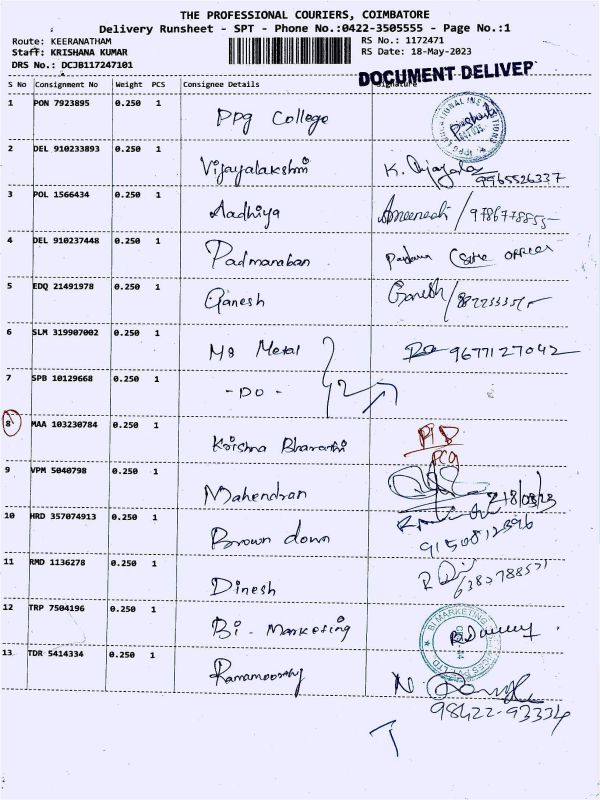 THE PROFESSIONAL COURIERS, COIMBATORE
Delivery Runsheet - SPT - Phone No.:0422-3505555 - Page No.:1
Route: KEERANATHAM RS No.: 1172471
Staff: KRISHANA KUMAR RS Date: 18-May-2023
DRS No.: DCJB117247101
DOCUMENT DELIVER
S No Consignment No Weight PCS Consignee Details Signature
1 PON 7923895 0.250 1
PPg College
2 DEL 910233893 0.250 1
Vijayalakshmi K.
9965526337
3 POL 1566434 0.250 1
Aadhiya
4 DEL 910237448 0.250 1
Padmanaban
5 EDQ 21491978 0.250 1
Ganesh Ganesh
6 SLM 319907002 0.250 1
MB Metal 9677127042
7 SPB 10129668 0.250 1
- DO -
8 MAA 103230784 0.250 1
Krishna Bharathi
9 VPM 5040798 0.250 1
Mahendran
10 HRD 357074913 0.250 1
Brown down 9150812896
11 RMD 1136278 0.250 1
Dinesh
12 TRP 7504196 0.250 1
Bi - Marketing
BI MARKETING
13 TDR 5414334 0.250 1
Ramamoorthy N
98422-93334